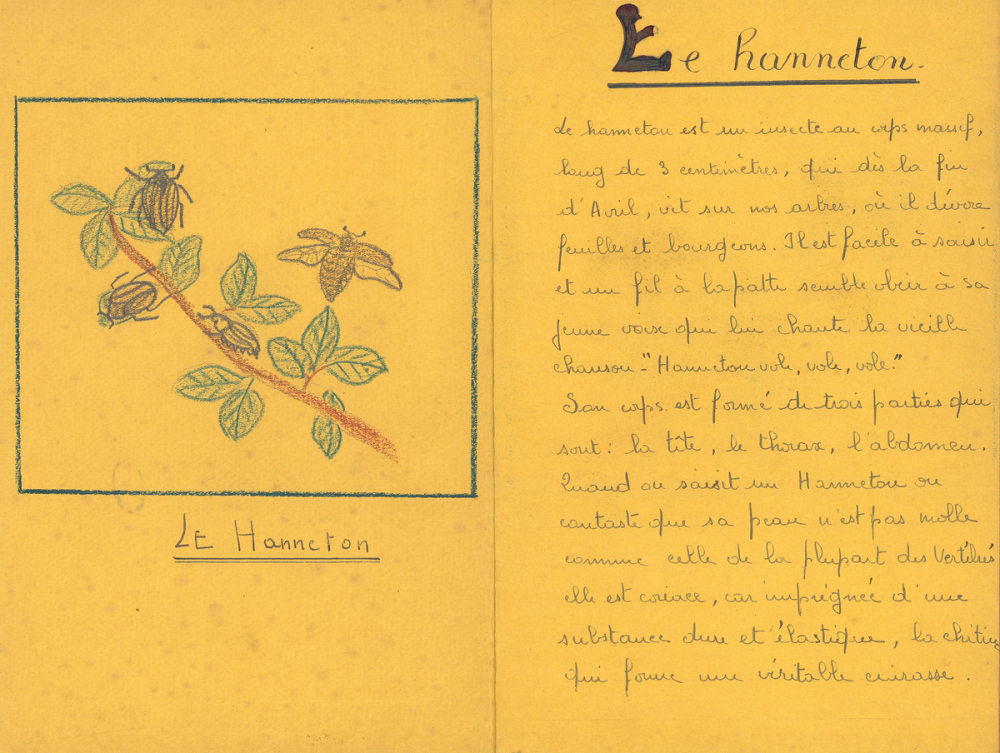 LE Hanneton
Le hanneton.
Le hanneton est un insecte au corps massif,
long de 3 centimètres, qui dès la fin
d'Avril, vit sur nos arbres, où il dévore
feuilles et bourgeons. Il est facile à saisir
et un fil à la patte semble obéir à sa
jeune voix qui lui chante la vieille
chanson - "Hanneton vole, vole, vole."
Son corps est formé de trois parties qui
sont : la tête, le thorax, l'abdomen.
Quand on saisit un Hanneton on
constate que sa peau n'est pas molle
comme celle de la plupart des Vertébrés
elle est coriace, car imprégnée d'une
substance dure et élastique, la chitine
qui forme une véritable cuirasse.